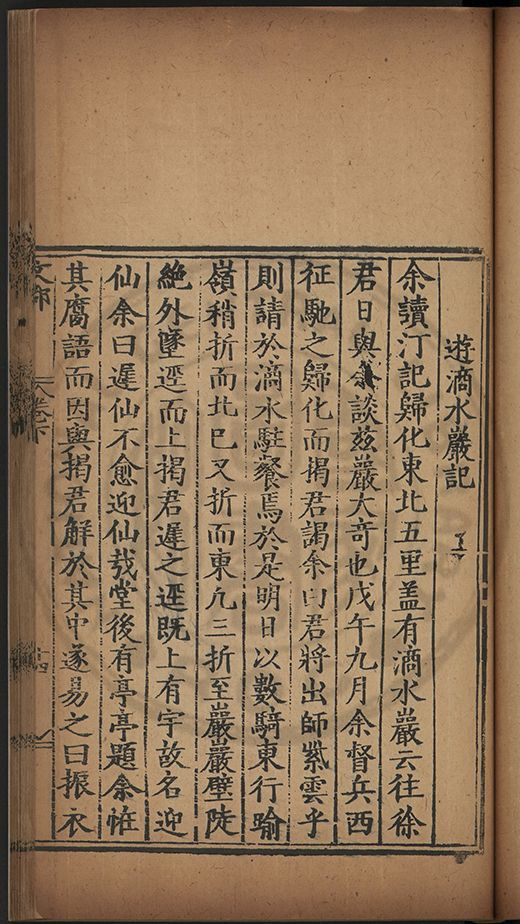 遊滴水巖記
余讀汀記歸化東北五里盖有滴水巖云往徐
君日與余談茲巖大奇也戊午九月余督兵西
征馳之歸化而揭君謁余曰君將出師紫雲乎
則請於滴水駐餐焉於是明日以數騎東行踰
嶺稍折而北已又折而東凢三折至巖巖壁陡
絶外墜逕而上揭君遲之逕既上有宇故名迎
仙余曰遲仙不愈迎仙哉堂後有亭亭題余惟
其腐語而因與揭君解於其中遂易之曰振衣
文部 卷下 十四